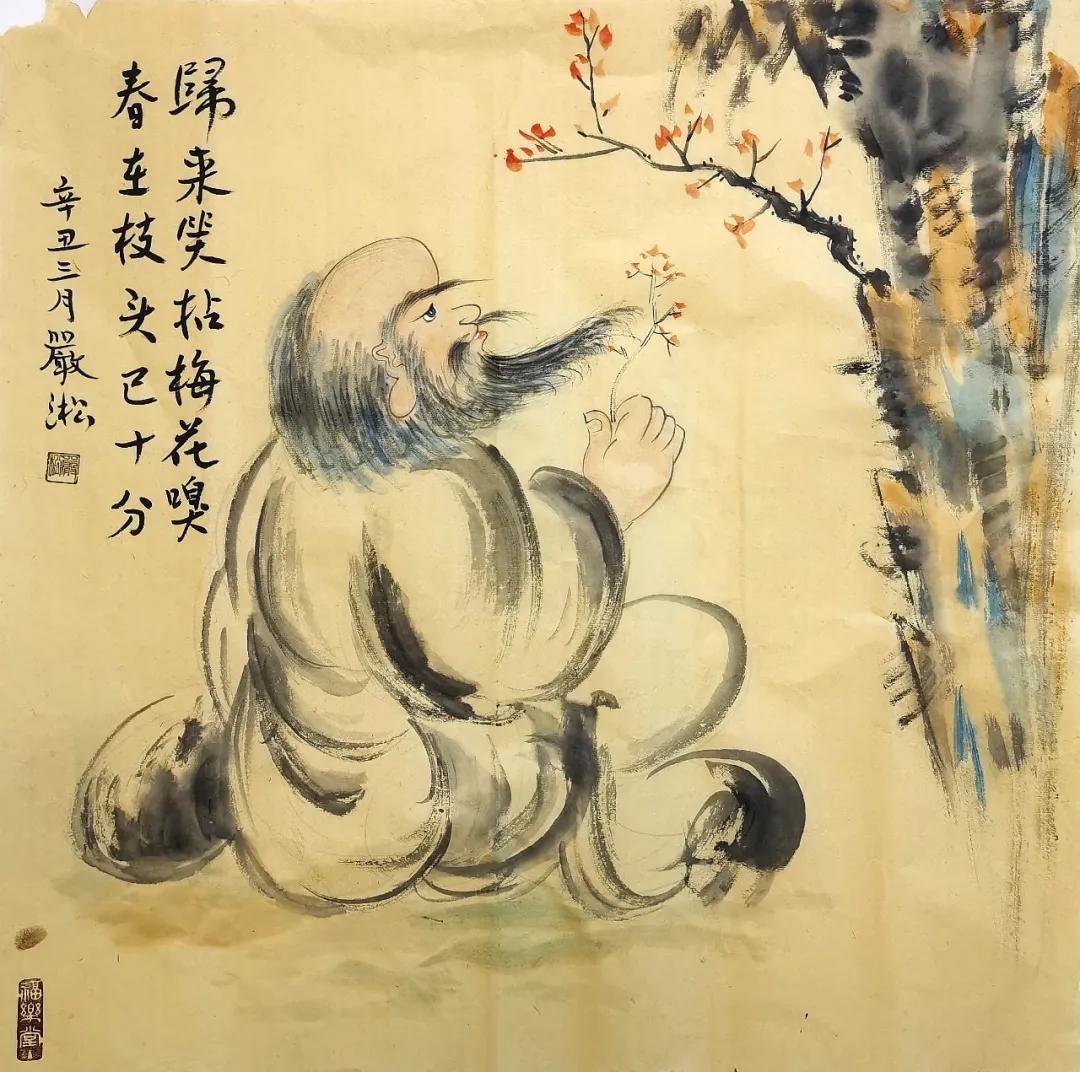 歸来笑拈梅花嗅
春在枝头已十分
辛丑三月嚴淞
福樂堂